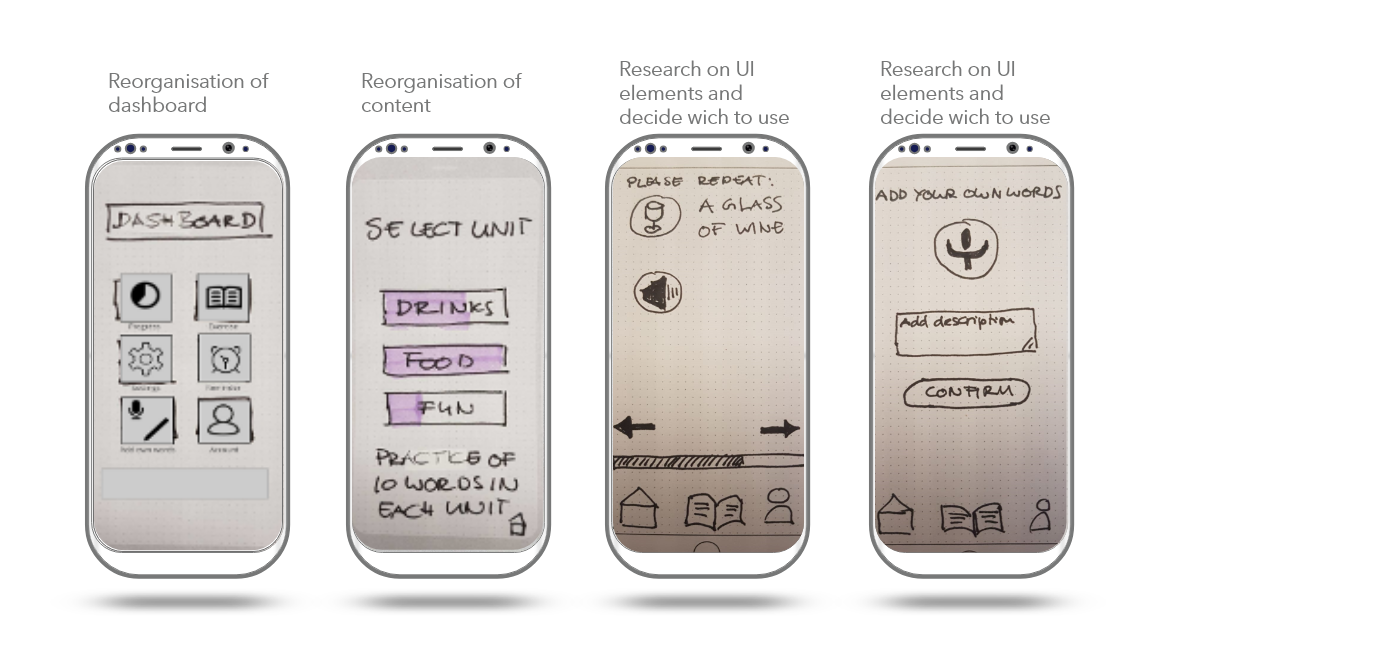 Reorganisation of
dashboard
DASHBOARD
Progress
Exercise
Settings
Reminder
Add own words
Account
Reorganisation of
content
SELECT UNIT
DRINKS
FOOD
FUN
PRACTICE OF
10 WORDS IN
EACH UNIT
Research on UI
elements and
decide wich to use
PLEASE REPEAT:
A GLASS
OF WINE
Research on UI
elements and
decide wich to use
ADD YOUR OWN WORDS
Add description
CONFIRM